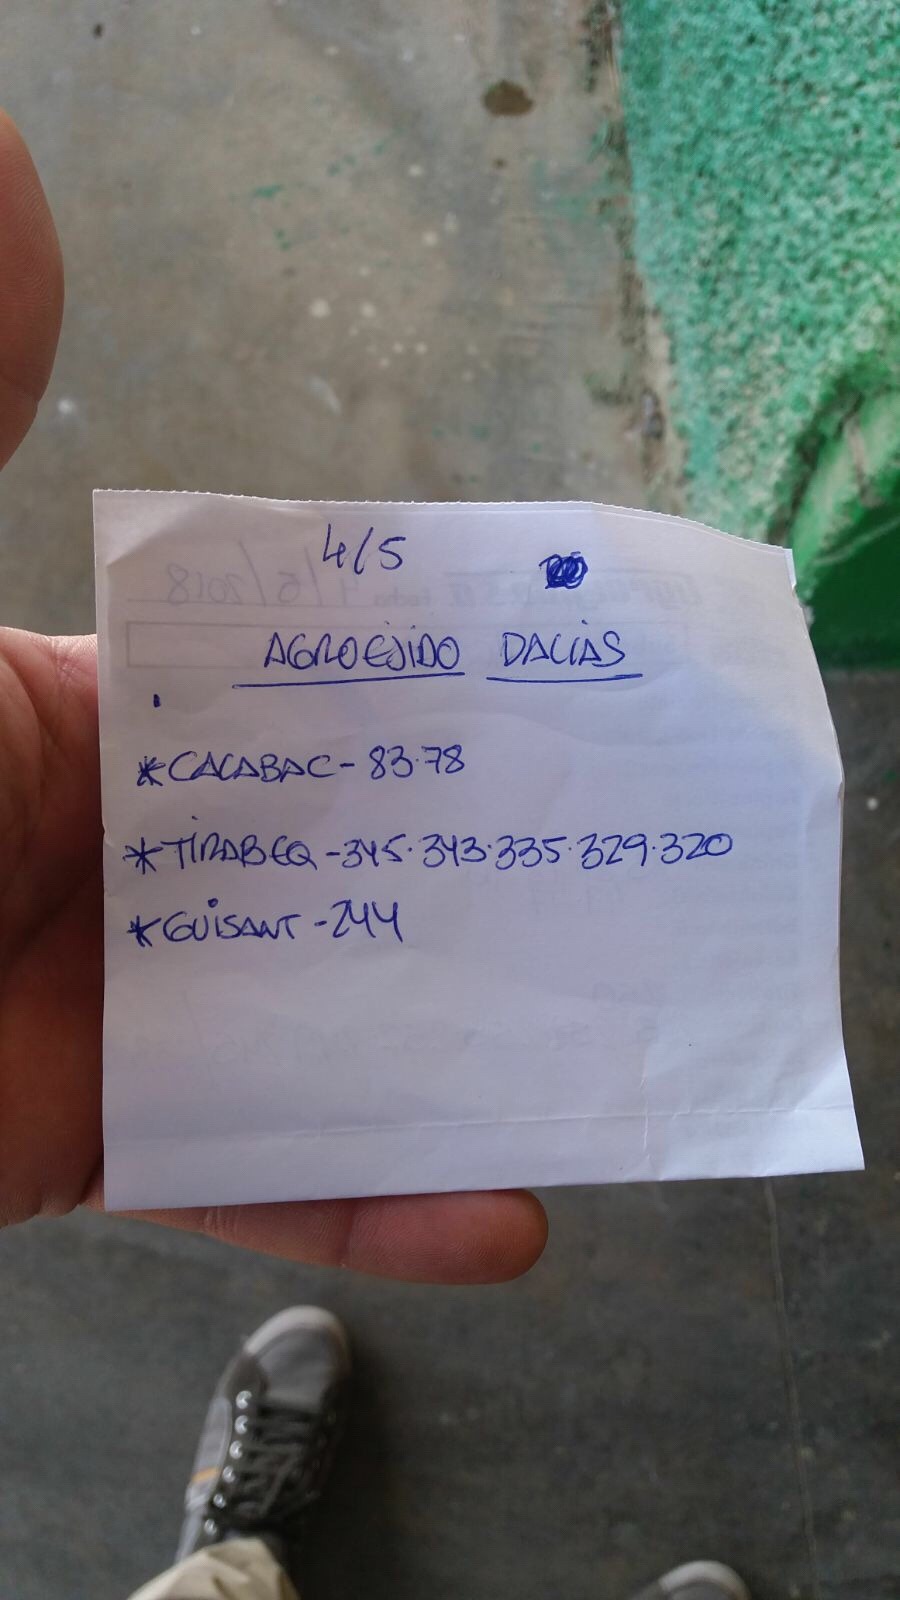 4/5
AGROEJIDO DALIAS
*CALABAC-83.78
*TIRABEQ-345.343.335.329.320
*GUISANT-244
4/5/2018